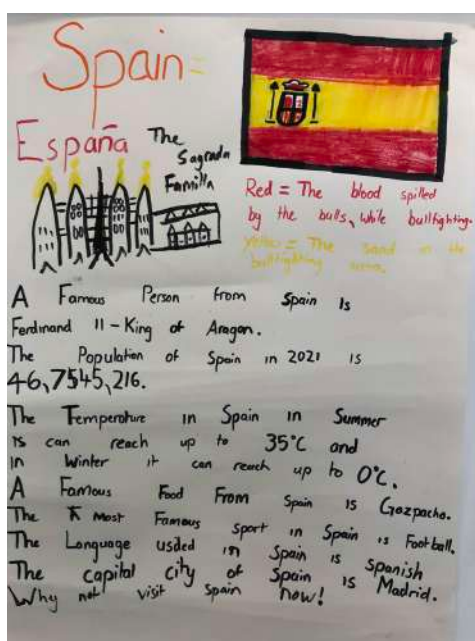 Spain=
España
The
Sagrada
Familla
Red = The blood spilled
by the bulls, while bullfighting.
Yellow = The sand in the
bullfighting arena.
A Famous Person from Spain Is
Ferdinand II - King of Aragon.
The Population of Spain in 2021 is
46,7545,216.
The Temperature in Spain in Summer
is can reach up to 35°C and
in Winter it can reach up to 0°C.
A Famous Food From Spain is Gazpacho.
The Most Famous sport in Spain is Football.
The Language usded in Spain is Spanish
The capital city of Spain is Madrid.
Why not visit Spain now!